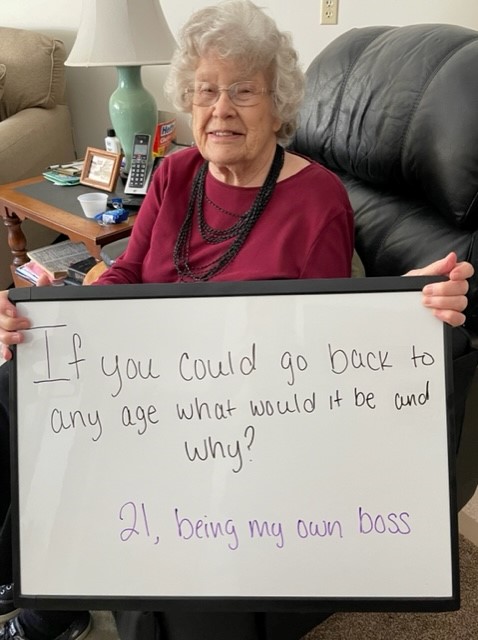 If you could go back to
any age what would it be and
why?
21, being my own boss